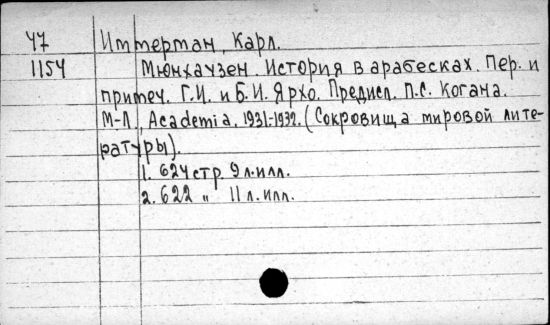 47 Иммерман, Карл.
1154 Мюнхаузен. История в арабесках. Пер. и
примеч. Г.И. и Б.И. Ярхо. Предисл. П.С. Когана.
М-Л, Academia, 1931-1932. (Сокровища мировой лите-
ратуры).
1. 624 стр. 9 л.илл.
2. 622 " 11 л. илл.